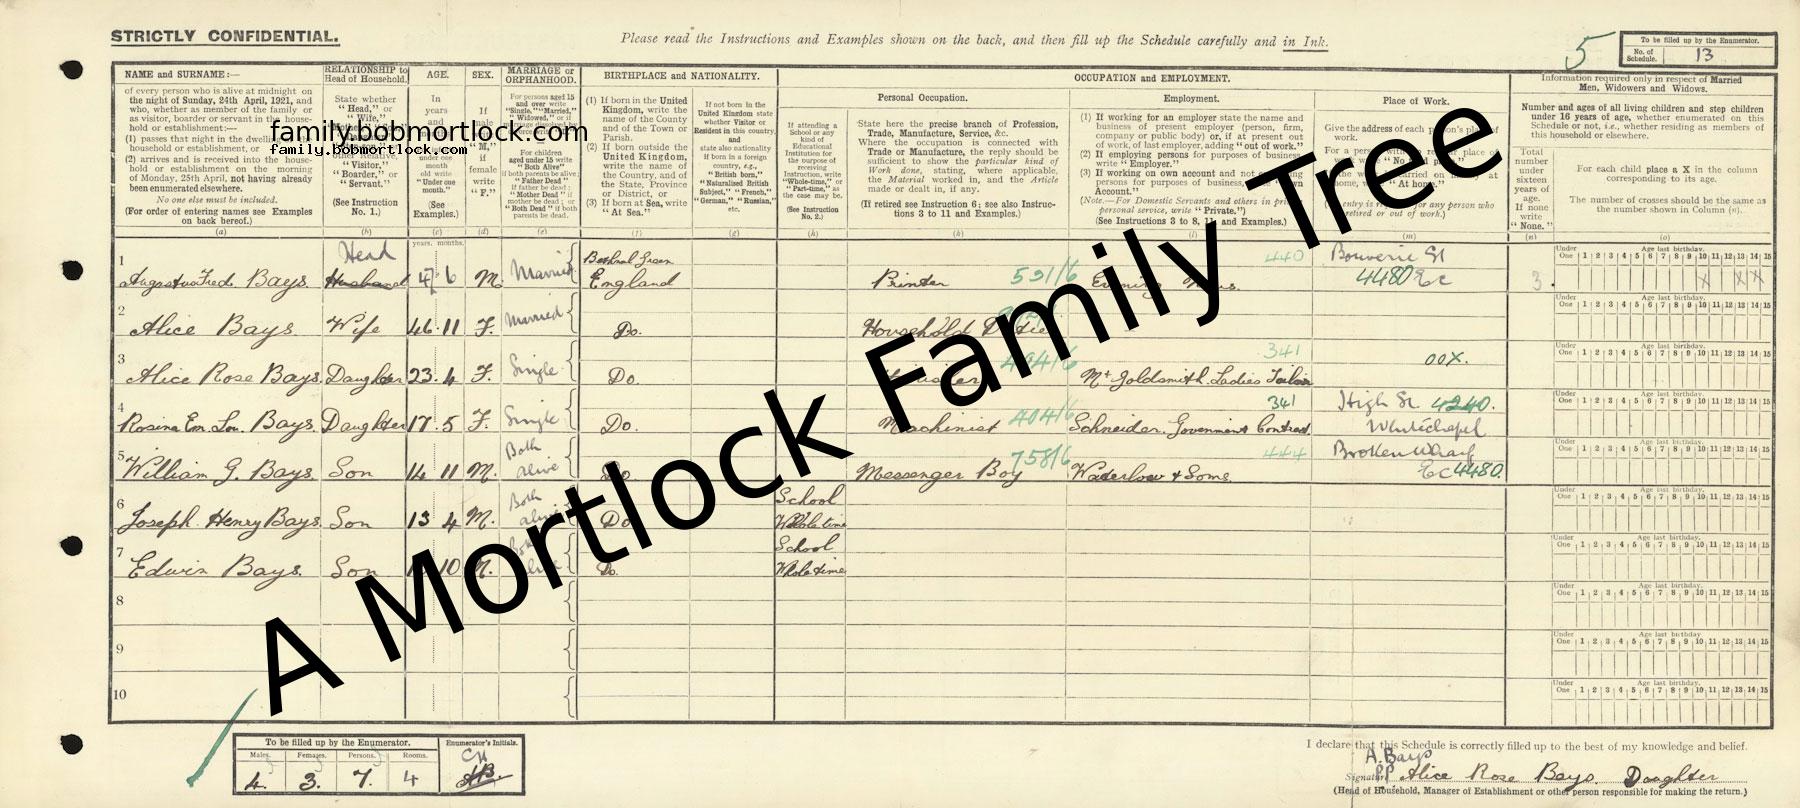 STRICTLY CONFIDENTIAL.
Please read the Instructions and Examples shown on the back, and then fill up the Schedule carefully and in Ink.
5
To be filled up by the Enumerator.
No. of Schedule. 13
NAME and SURNAME:—
of every person who is alive at midnight on the night of Sunday, 24th April, 1921, and who, whether as member of the family or as visitor, boarder or servant in the household or establishment:—
(1) passes that night in the dwelling household or establishment,
(2) arrives and is received into the household or establishment on the morning of Monday, 25th April, not having already been enumerated elsewhere.
No one else must be included.
(For order of entering names see Examples on back hereof.)
(a)
RELATIONSHIP to Head of Household.
State whether "Head," or "Wife,"
"Visitor," "Boarder," or "Servant."
(See Instruction No. 1.)
(b)
AGE.
In years and
under one month old write "Under one month."
(See Examples.)
(c)
SEX.
If male write "M," if female write "F."
(d)
MARRIAGE or ORPHANHOOD.
For persons aged 15 and over write "Single," "Married," "Widowed," or if
For children aged under 15 write "Both Alive" if both parents be alive; "Father Dead" if father be dead; "Mother Dead" if mother be dead; or "Both Dead" if both parents be dead.
(e)
BIRTHPLACE and NATIONALITY.
(1) If born in the United Kingdom, write the name of the County and of the Town or Parish.
(2) If born outside the United Kingdom, write the name of the Country, and of the State, Province or District, or
(3) If born at Sea, write "At Sea."
(f)
If not born in the United Kingdom state whether Visitor or Resident in this country,
and
state also nationality
If born in a foreign country, e.g., "British born," "Naturalised British Subject," "French," "German," "Russian," etc.
(g)
OCCUPATION and EMPLOYMENT.
If attending a School or any kind of Educational Institution for the purpose of receiving Instruction, write "Whole-time," or "Part-time," as the case may be.
(See Instruction No. 2.)
(h)
Personal Occupation.
State here the precise branch of Profession, Trade, Manufacture, Service, &c.
Where the occupation is connected with Trade or Manufacture, the reply should be sufficient to show the particular kind of Work done, stating, where applicable, the Material worked in, and the Article made or dealt in, if any.
(If retired see Instruction 6; see also Instructions 3 to 11 and Examples.)
(k)
Employment.
(1) If working for an employer state the name and business of present employer (person, firm, company or public body) or, if at present out of work, of last employer, adding "out of work."
(2) If employing persons for purposes of business write "Employer."
(3) If working on own account and not employing persons for purposes of business, Own Account."
(Note.—For Domestic Servants and others in personal service, write "Private.")
(See Instructions 3 to 8, 11 and Examples.)
(l)
Place of Work.
Give the address of each person's place of work.
(m)
Information required only in respect of Married Men, Widowers and Widows.
Number and ages of all living children and step children under 16 years of age, whether enumerated on this Schedule or not, i.e., whether residing as members of this household or elsewhere.
Total number under sixteen years of age. If none write "None."
(n)
For each child place a X in the column corresponding to its age.
The number of crosses should be the same as the number shown in Column (n).
(o)
years. months.
family.bobmortlock.com
family.bobmortlock.com
1 Head
Bethnal Green
440 Bouverie St
Augustus Fred. Bays. Husband 47 6 M. Married England Printer 521/6 Evening News. 4480 EC 3. X X X
2 Alice Bays. Wife 46 11 F. Married Do. Household Duties
3 341
Alice Rose Bays. Daughter 23 4 F. Single Do. Mr Goldsmith. Ladies Tailor 00X.
4 341 High St. 4240.
Rosina Em. Lou. Bays. Daughter 17 5 F. Single Do. Machinist 404/6 Schneider. Government Contract. Whitechapel
5 Both 758/6 444 Broken Wharf
William G. Bays. Son 14 11 M. alive Do. Messenger Boy Waterlow & Sons. EC 4480.
6 Both School
Joseph Henry Bays. Son 13 4 M. alive Do Whole time
7 School
Edwin Bays. Son 10 M. Do. Whole time
8
9
10
Under One Age last birthday. 1 2 3 4 5 6 7 8 9 10 11 12 13 14 15
A Mortlock Family Tree
To be filled up by the Enumerator.
Males. Females. Persons. Rooms.
4. 3. 7. 4
Enumerator's Initials.
I declare that this Schedule is correctly filled up to the best of my knowledge and belief.
A. Bays
Signature pp Alice Rose Bays. Daughter
(Head of Household, Manager of Establishment or other person responsible for making the return.)